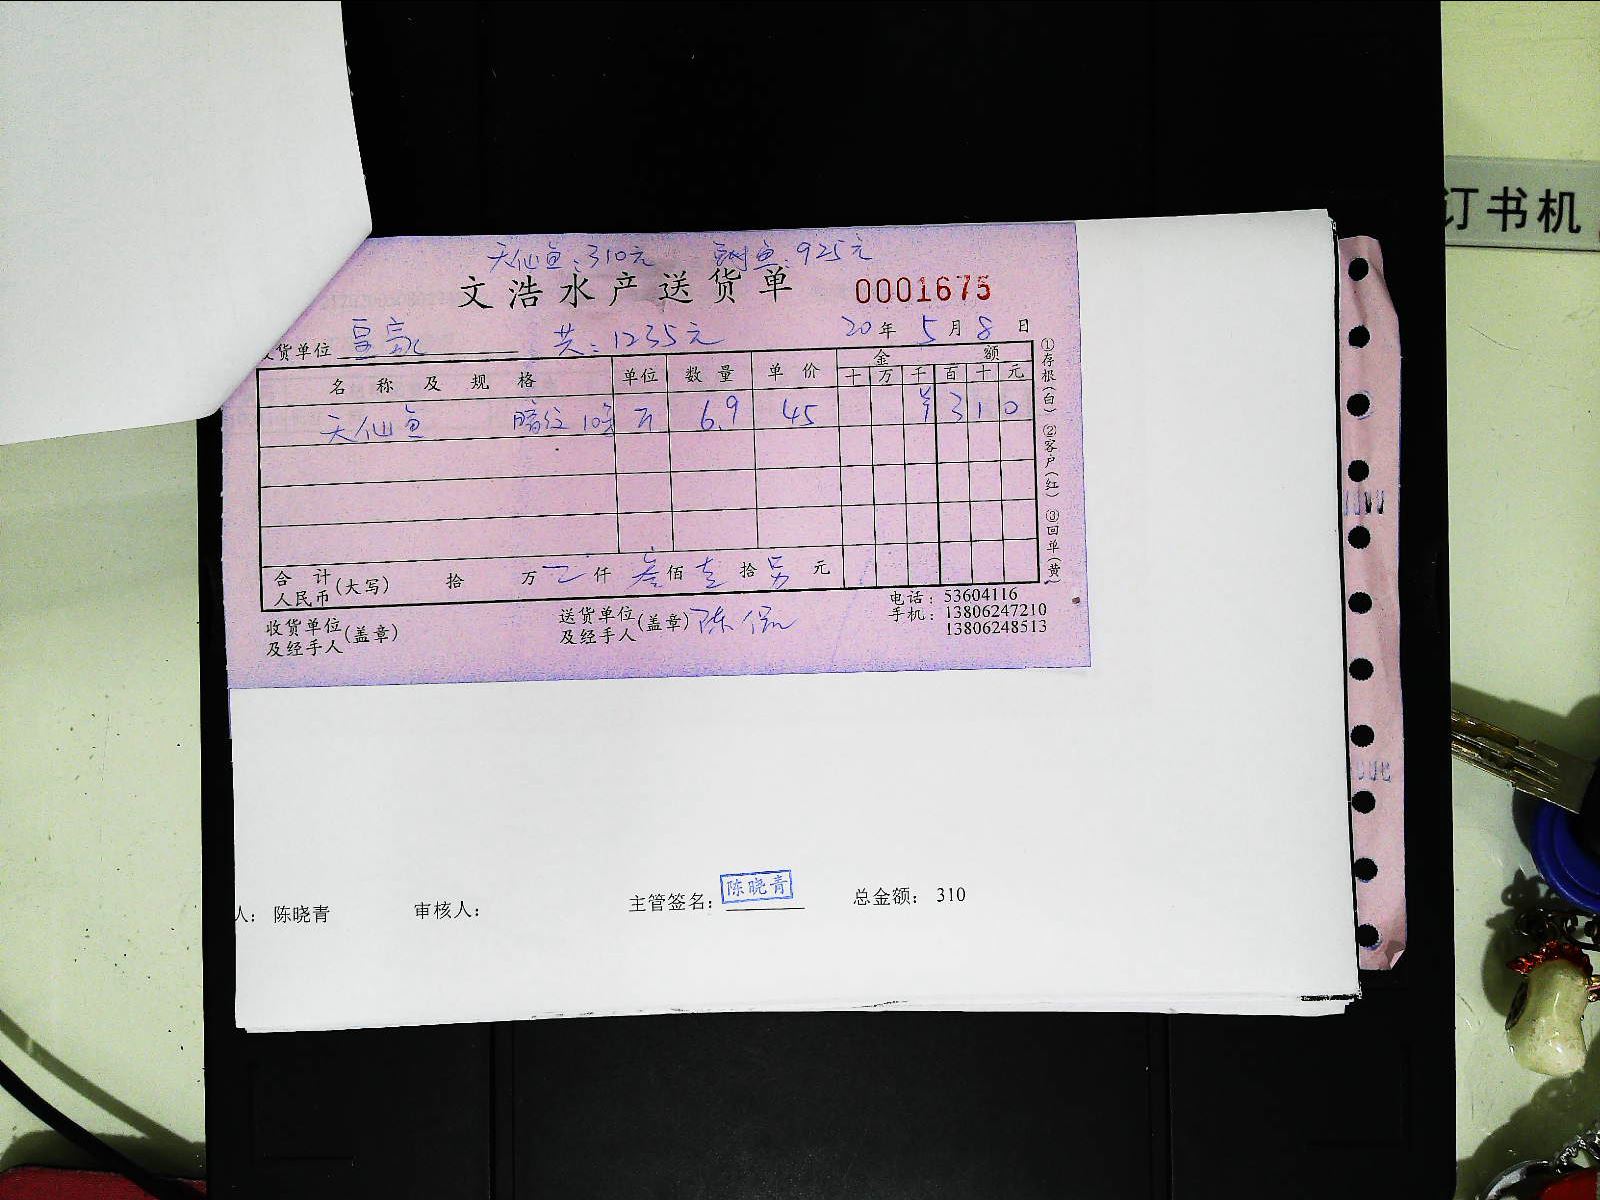 天仙鱼：310元 鲥鱼：925元
文浩水产送货单 0001675
货单位 共：1235元 20年5月8日
名称及规格 单位 数量 单价 金额
十 万 千 百 十 元
天仙鱼 斤 6.9 45 ¥ 3 1 0
合计 人民币 (大写) 拾 万 仟 叁 佰 壹 拾 另 元
①存根(白) ②客户(红) ③回单(黄)
收货单位及经手人 (盖章)
送货单位及经手人 (盖章) 陈
电话：53604116
手机：13806247210
13806248513
人：陈晓青 审核人： 主管签名：陈晓青 总金额：310
订书机